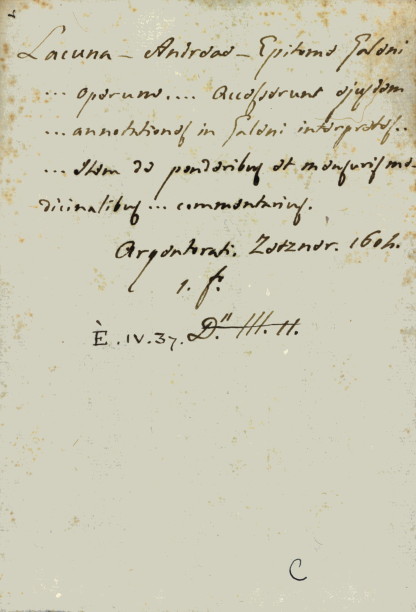 Lacuna - Andreae - Epitome Galeni
... operum.... Accesserunt ejusdem
... annotationes in Galeni interpretes..
... Item de ponderibus et mensuris me-
dicinalibus ... commentarius.
Argentorati. Zetzner. 1604.
1. f.
È. IV. 37. D." III. 11.
C